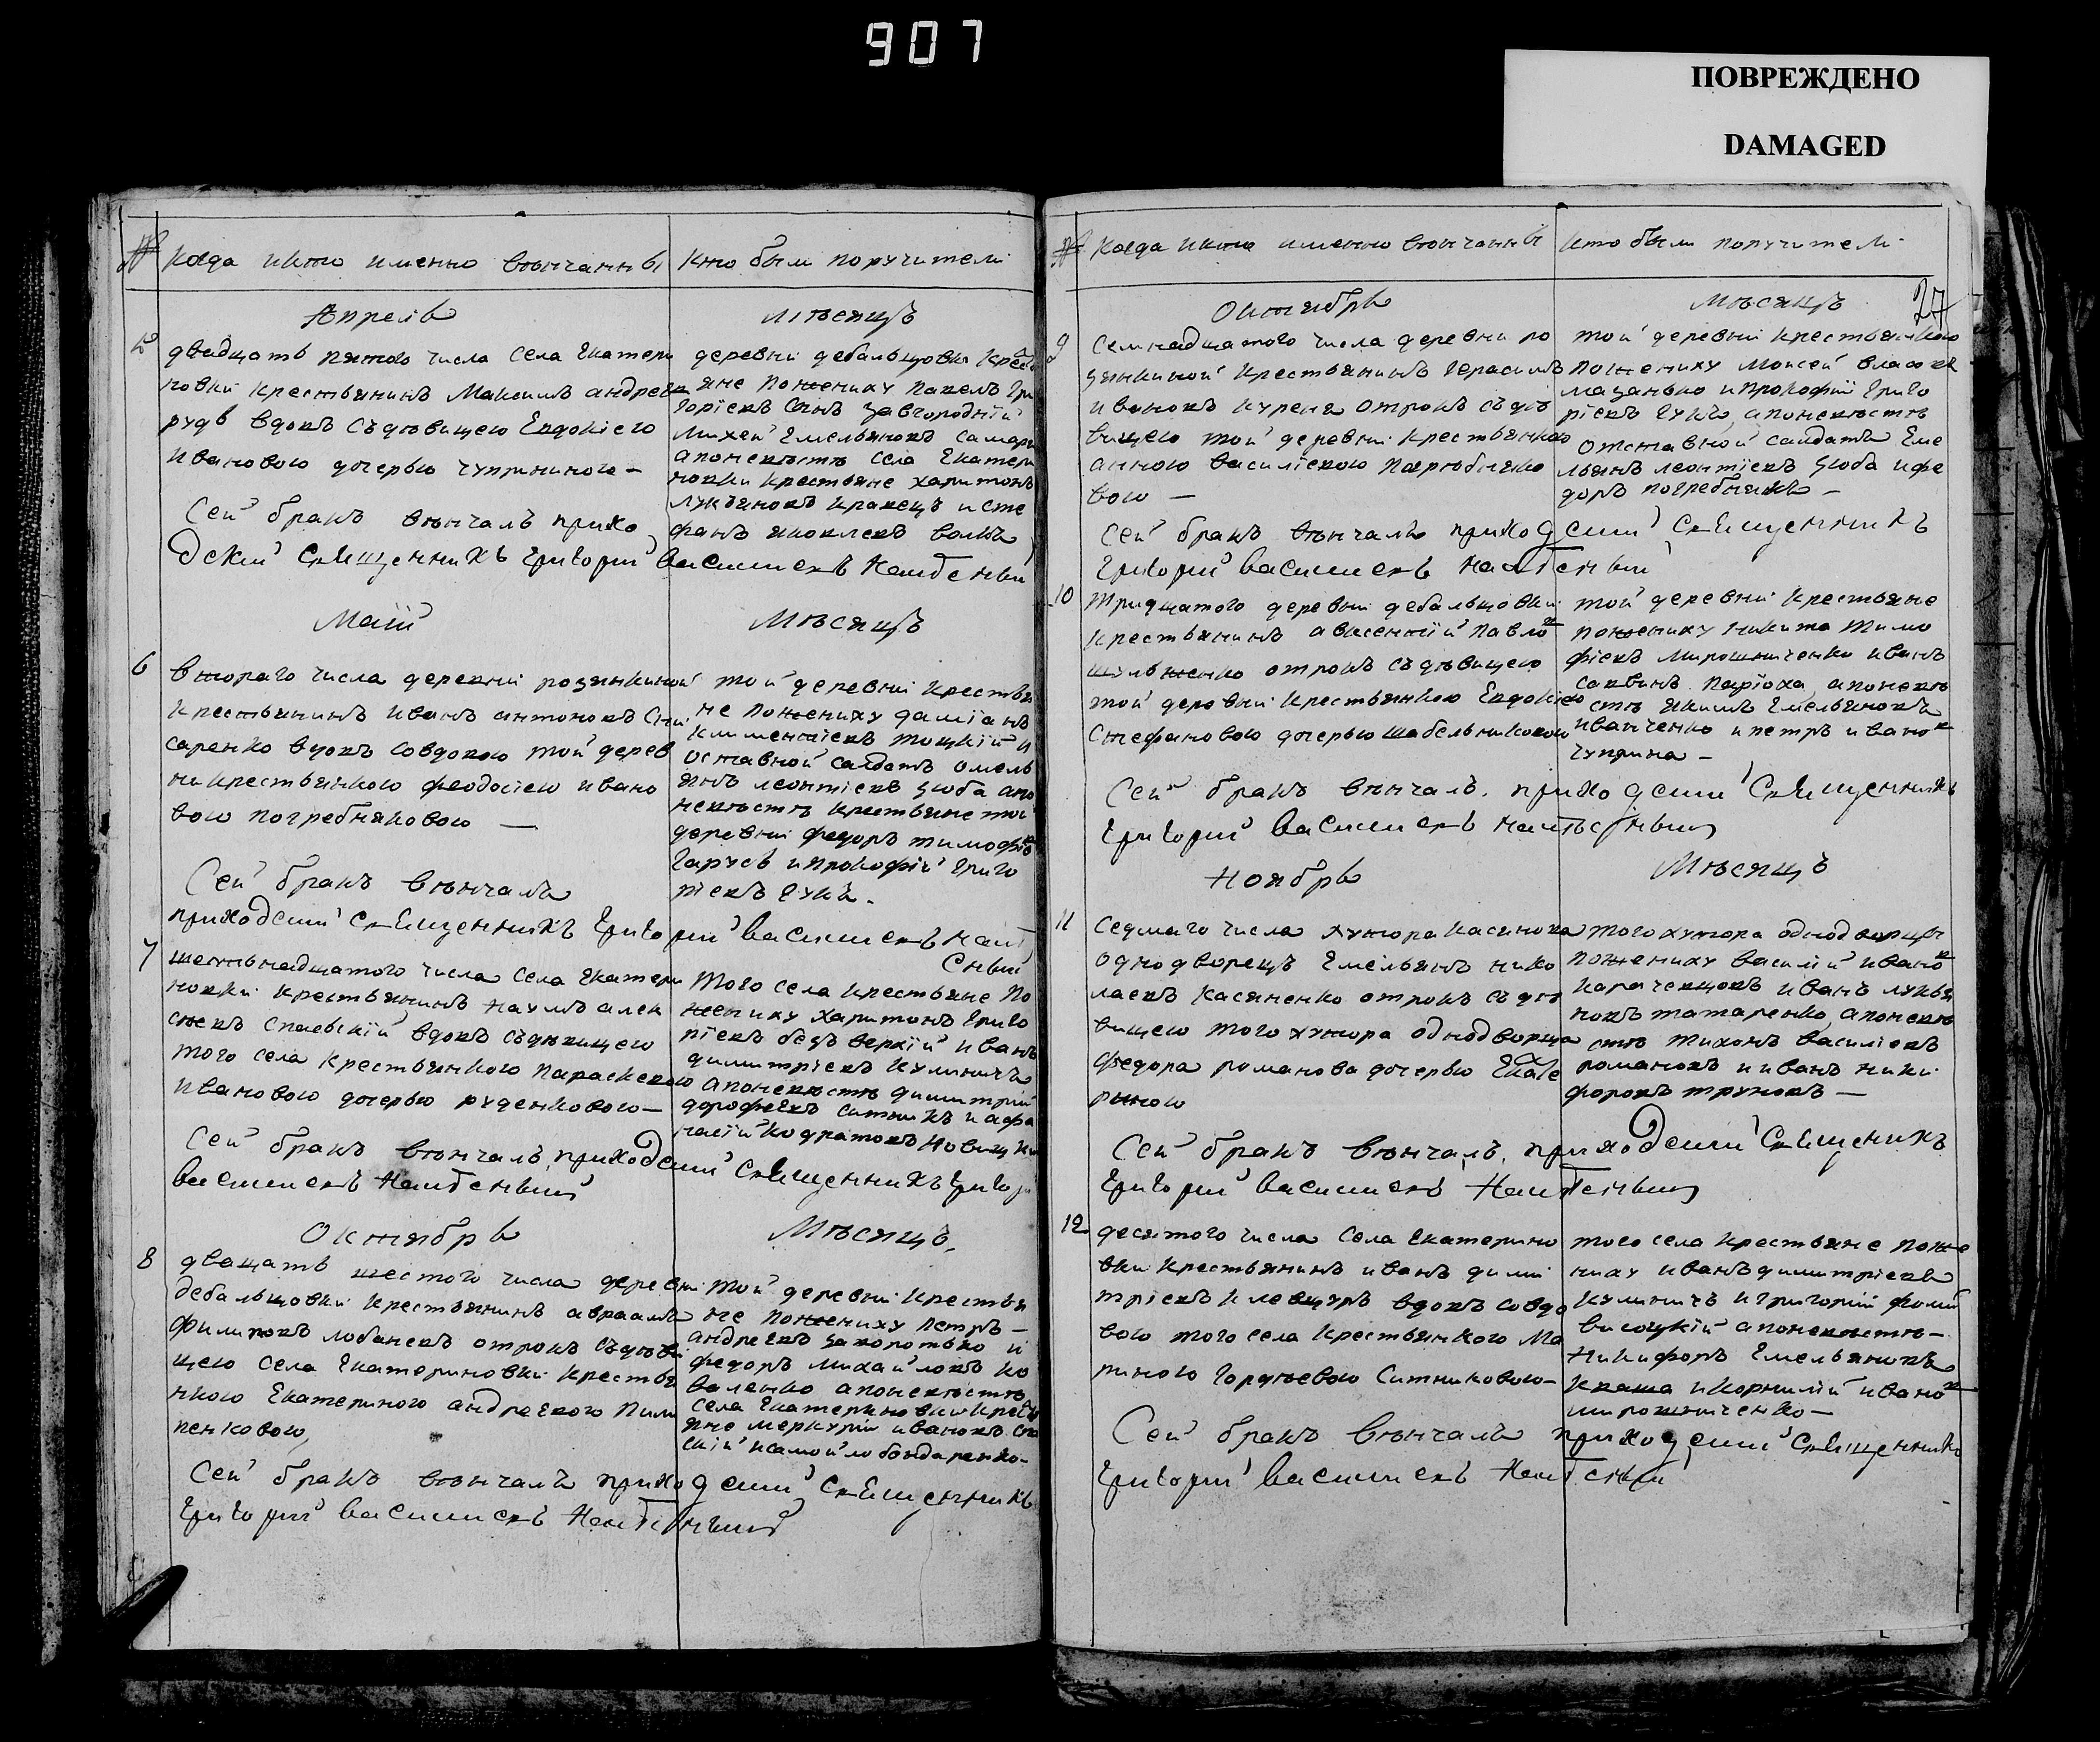 907
ПОВРЕЖДЕНО
DAMAGED
№ Когда и кто именно венчанны
Кто были поручители
Апрель
Мѣсяцъ
5
двадцать пятого числа села Екатери
новки крестьянинъ Максимъ андреевъ
рудь вдовъ съ дѣвицею Евдокіею
Ивановою дочерью чуприниною –
деревни дебальцовки крест
яне по жениху Павелъ Гри
горіевъ сынъ завгородній
Михей Емельяновъ самар
а по невѣстѣ села Екатери
новки крестьяне харитонъ
лукьяновъ кравецъ и сте
фанъ яковлевъ волкъ
Сей бракъ венчалъ прихо
дский священникъ Григорий василиевъ
Маій
Мѣсяцъ
6
второго числа деревни розинкиной
крестьянинъ Иванъ антоновъ
саренко вдовъ со вдовою той дерев
ни крестьянкою феодосіею ивано
вою погребняковою —
той деревни крестья
не по жениху даміанъ
климентіевъ тоцкій и
оставной салдатъ омель
янъ леонтіевъ зюба а по
невѣстѣ крестьяне той
деревни федоръ тимофѣевъ
гарусь и прокофій григо
ріевъ гукъ.
Сей бракъ венчалъ
приходский священникъ Григорий василиевъ
7
шестьнадцатого числа села Екатери
новки крестьянинъ наумъ алек
сѣевъ спаевскій вдовъ съ дѣвицею
того села крестьянкою параскевою
Ивановою дочерью руденковою —
того села крестьяне по
жениху харитонъ григо
ріевъ безъверхій иванъ
димитріевъ кулиничъ
а по невѣстѣ димитрій
дорофѣевъ ситникъ и афа
насій кодратовъ
Сей бракъ венчалъ, приходский священникъ Григорий
василиевъ
Октябрь
Мѣсяцъ.
8
дващать шестого числа деревни
дебальцовки крестьянинъ авраамъ
филиповъ лобачевъ отрокъ съ дѣви
цею села Екатериновки крестья
нкою Екатериною андреевою пили
пенковою,
той деревни крестья
не по жениху петръ –
андреевъ закоротько и
федоръ михайловъ ко
валенко а по невѣстѣ
села Екатериновки крест
яне меркурій ивановъ спа
скій и самойло бондаренко-
Сей бракъ венчалъ приходский священникъ
Григорий василиевъ
№ Когда и кто именно венчанны
Кто были поручители
27
Октябрь
Мѣсяцъ
9
семнадцатого числа деревни ро
зинкиной крестьянинъ герасимъ
ивановъ куреня отрокъ съ дѣ
вицею той деревни крестьянкою
анною василіевою погребняко
вою —
той деревни крестьянкою
по жениху моисей власовъ
мазанько и прокофій григо
ріевъ гукъ, а по невѣстѣ
отставной салдатъ еме
льянъ леонтіевъ зюба и фе
доръ погребнякъ —
Сей бракъ венчалъ приходский священникъ
Григорий василиевъ
10
тридцатого деревни дебальцовки
крестьянинъ авксентій павло
шульженко отрокъ съ дѣвицею
той деревни крестьянкою Евдокіею
стефановою дочерью шабельниковою
той деревни крестьяне
по жениху никита тимо
фіевъ мирошниченко иванъ
саввинъ паріоха, а по невѣ
стѣ якимъ емельяновъ
иванченко и петръ ивано
чуприна –
Сей бракъ венчалъ. приходский священникъ
Григорий василиевъ
Ноябрь
Мѣсяцъ
11
седмаго числа хутора касянова
однодворецъ емельянъ нико
лаевъ касяненко отрокъ съ дѣ
вицею того хутора однодворца
федора романова дочерью Екате
риною
того хутора однодворцы
по жениху василій ивано
карачевцовъ иванъ лукья
новъ татаренко, а по невѣ
стѣ тихонъ василіевъ
романовъ и иванъ ники
форовъ труновъ —
Сей бракъ венчалъ, приходский священикъ
Григорий василиевъ
12
десятого числа села Екатерино
вки крестьянинъ иванъ дими
тріевъ клевцуръ вдовъ со вдо
вою того села крестьянкою Ма
риною гордѣевою ситниковою-
того села крестьяне по же
ниху иванъ димитріевъ
кулиничъ и григорій фомин
высоцкій а по невѣстѣ-
никифоръ емельяновъ
кваша и корнилій ивано
мирошниченко —
Сей бракъ венчалъ приходский священникъ
Григорий василиевъ